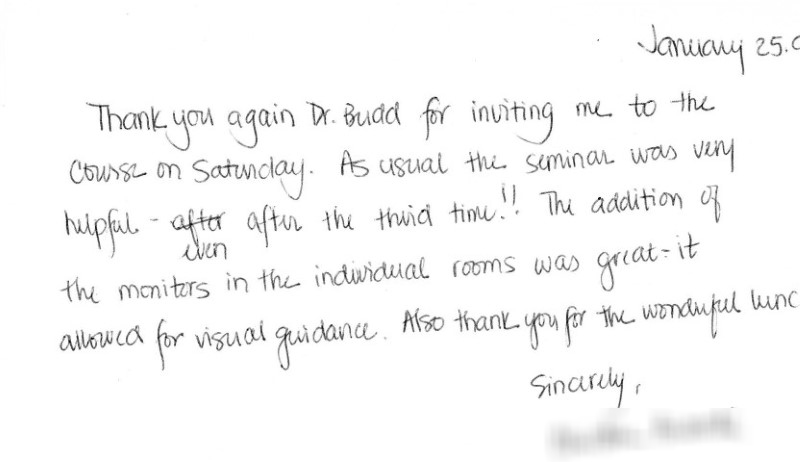 January 25.
Thank you again Dr. Budd for inviting me to the
course on Saturday. As usual the seminar was very
helpful - after after the third time!! The addition of
even
the monitors in the individual rooms was great - it
allowed for visual guidance. Also thank you for the wonderful lunc
Sincerely,